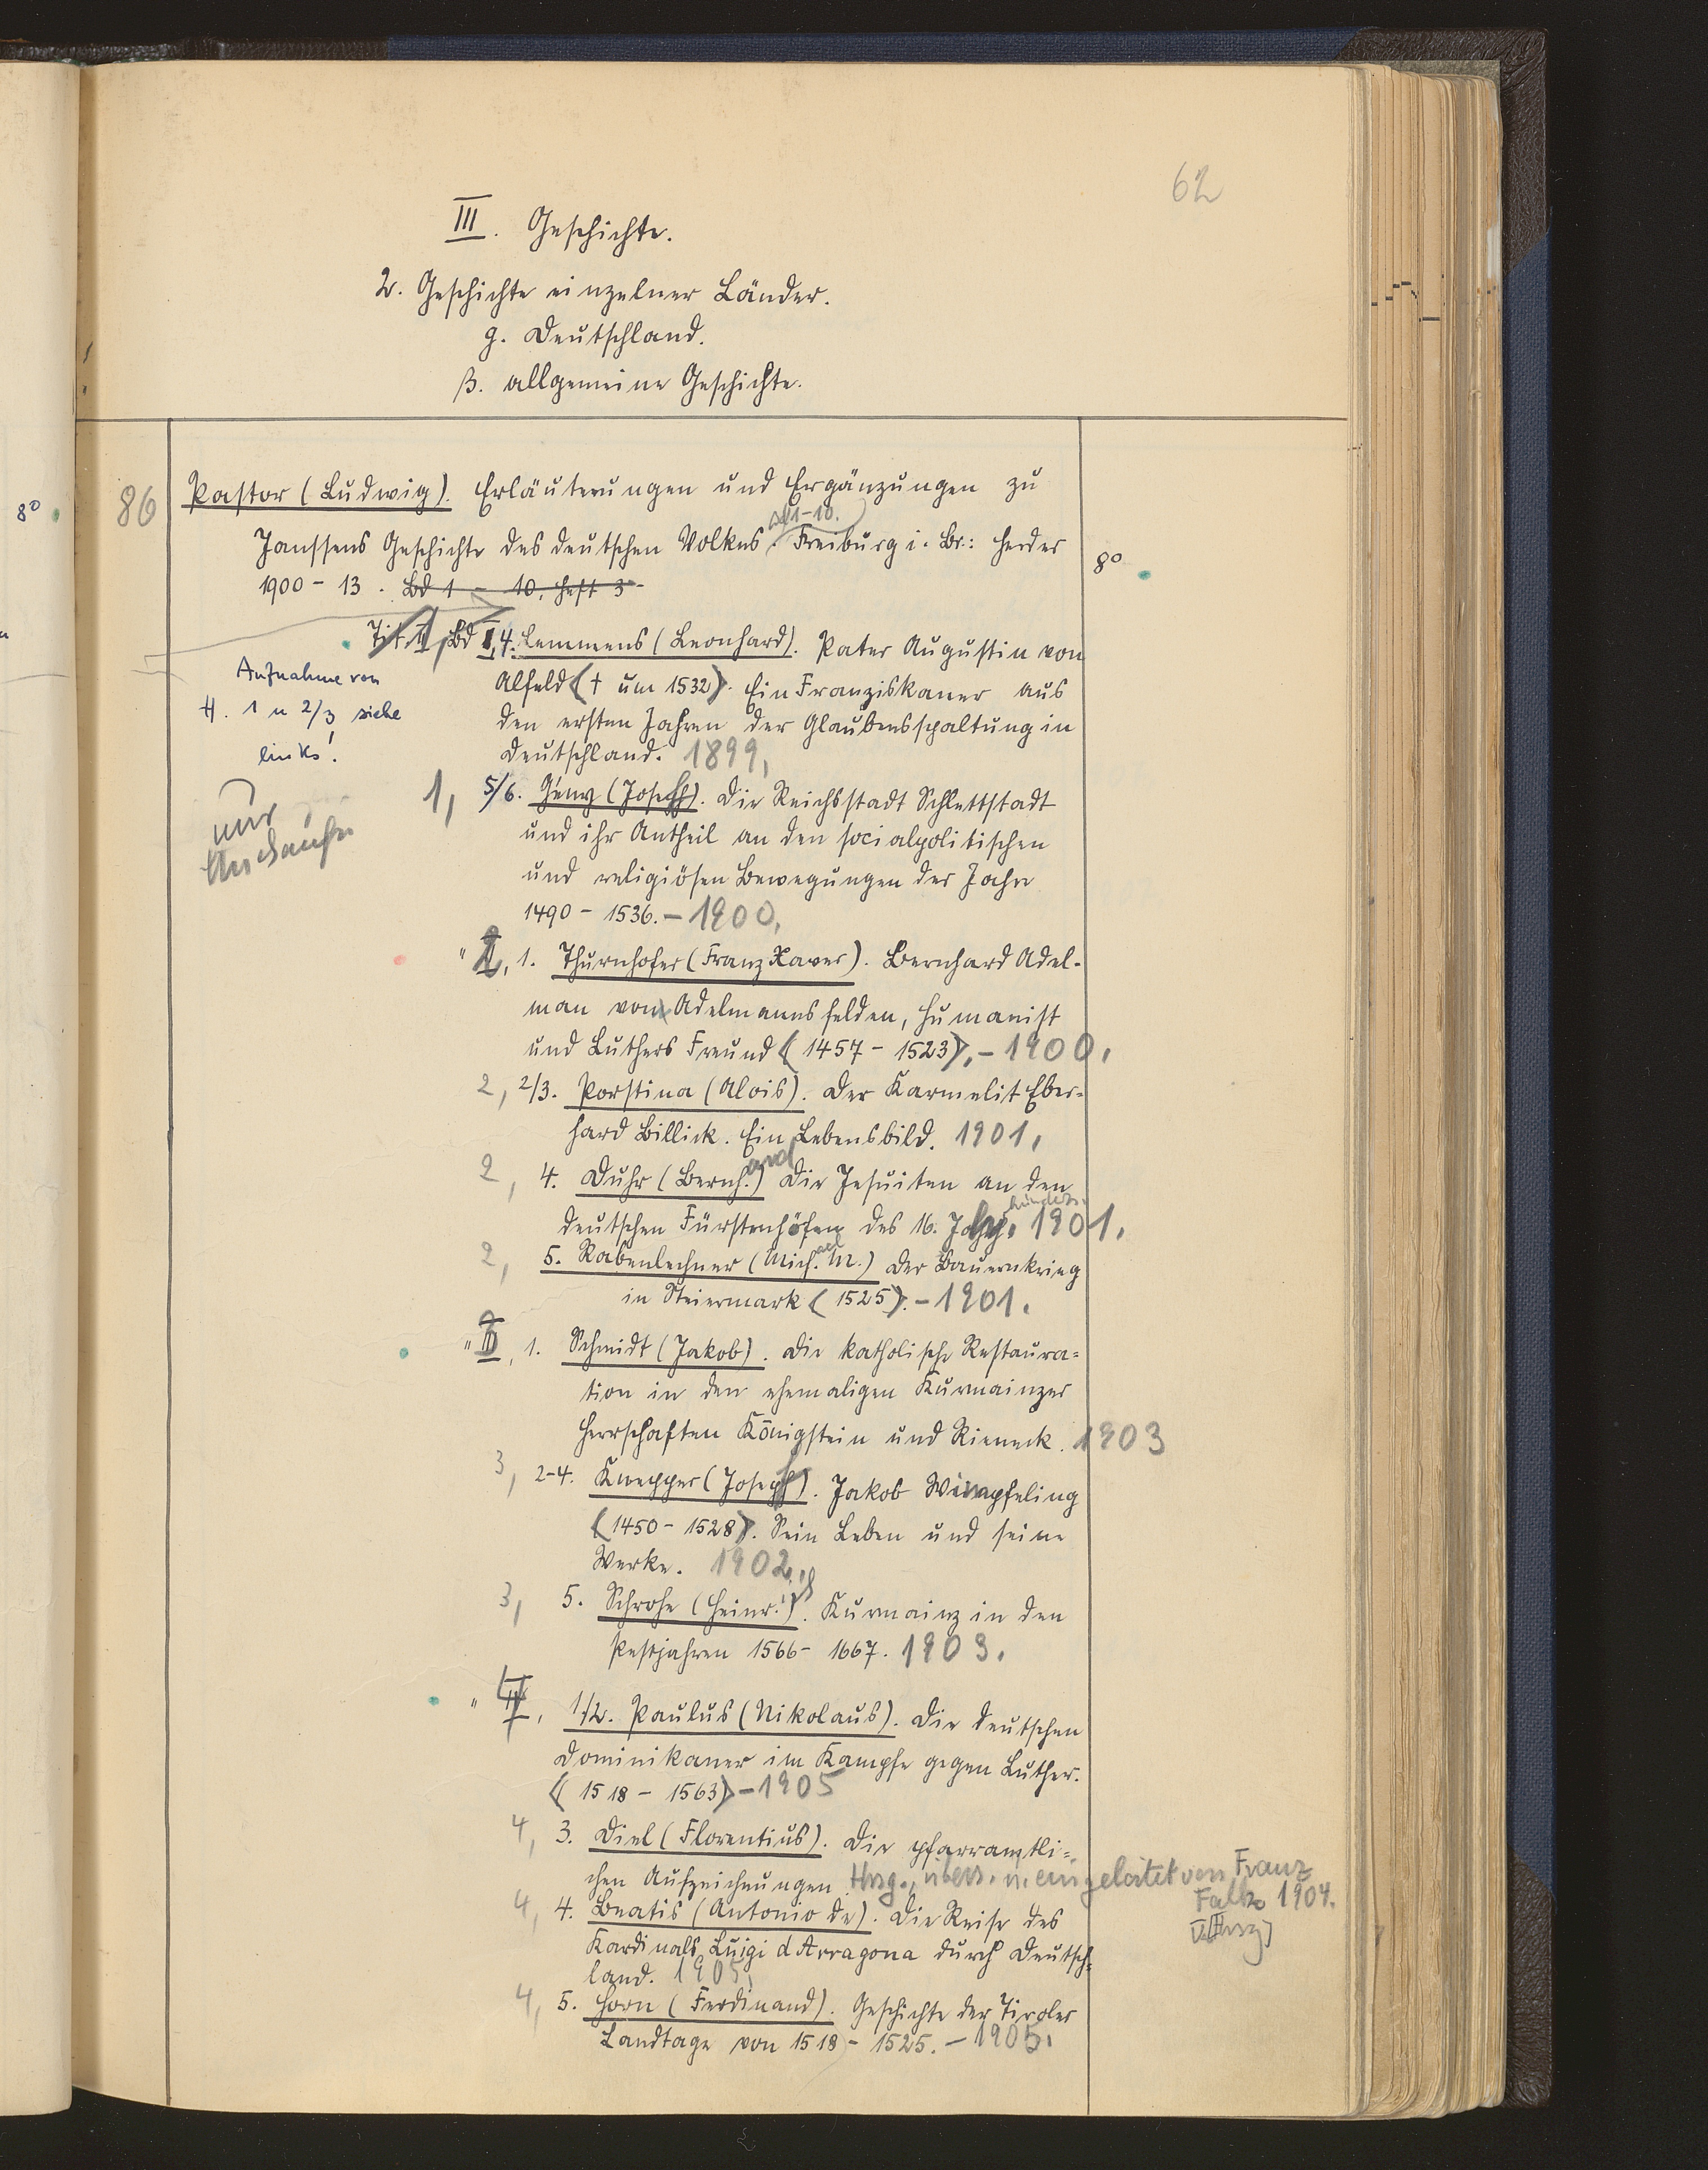 62
III. Geschichte.
2. Geschichte einzelner Länder.
g. Deutschland.
β. allgemeine Geschichte.
86 Pastor (Ludwig). Erläuterungen und Ergänzungen zu
1-10.
Janssens Geschichte des deutschen Volkes. Freiburg i. Br.: Herder
8°
1900 - 13. Bd 1 - 10, Heft 3
8°
Bd I,4. Lemmens (Leonhard). Pater Augustin von
Alfeld († um 1532). Ein Franziskaner aus
den ersten Jahren der Glaubensspaltung in
Deutschland. 1899,
Aufnahme von
H. 1 u 2/3 siehe
links!
nur
1, 5/6. Gény (Joseph). Die Reichsstadt Schlettstadt
und ihr Antheil an den socialpolitischen
und religiösen Bewegungen der Jahre
1490 - 1536. - 1900.
" 2, 1. Thurnhofer (Franz Xaver). Bernhard Adel-
man von Adelmannsfelden, Humanist
und Luthers Freund (1457 - 1523). - 1900.
2, 2/3. Postina (Alois). Der Karmelit Eber-
hard Billick. Ein Lebensbild. 1901.
2, 4. Duhr (Bernhard) Die Jesuiten an den
deutschen Fürstenhöfen des 16. Jahrhunderts. 1901.
2, 5. Rabenlechner (Michael M.) Der Bauernkrieg
in Steiermark (1525). - 1901.
" 3, 1. Schmidt (Jakob). Die katholische Restaura-
tion in den ehemaligen Kurmainzer
Herrschaften Königstein und Rieneck. 1903
3, 2-4. Knepper (Joseph). Jakob Wimpfeling
(1450 - 1528). Sein Leben und seine
Werke. 1902.
3, 5. Schrohe (Heinrich). Kurmainz in den
Pestjahren 1566 - 1667. 1903.
" 4, 1/2. Paulus (Nikolaus). Die deutschen
Dominikaner im Kampfe gegen Luther.
(1518 - 1563) - 1905
4, 3. Diel (Florentius). Die pfarramtli-
chen Aufzeichnungen. Hrsg., übers. u. eingeleitet von Franz
Falk 1904.
4, 4. Beatis (Antonio de). Die Reise des
Kardinals Luigi d Arragona durch Deutsch-
land. 1905,
4, 5. Horn (Ferdinand). Geschichte der Tiroler
Landtage von 1518 - 1525. - 1905.